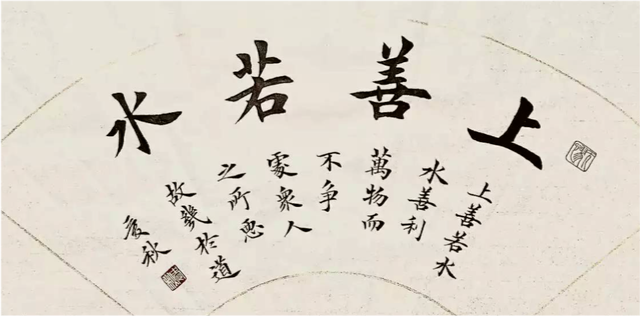 上善若水
上善若水
水善利
萬物而
不争
處衆人
之所惡
故幾於道
秋